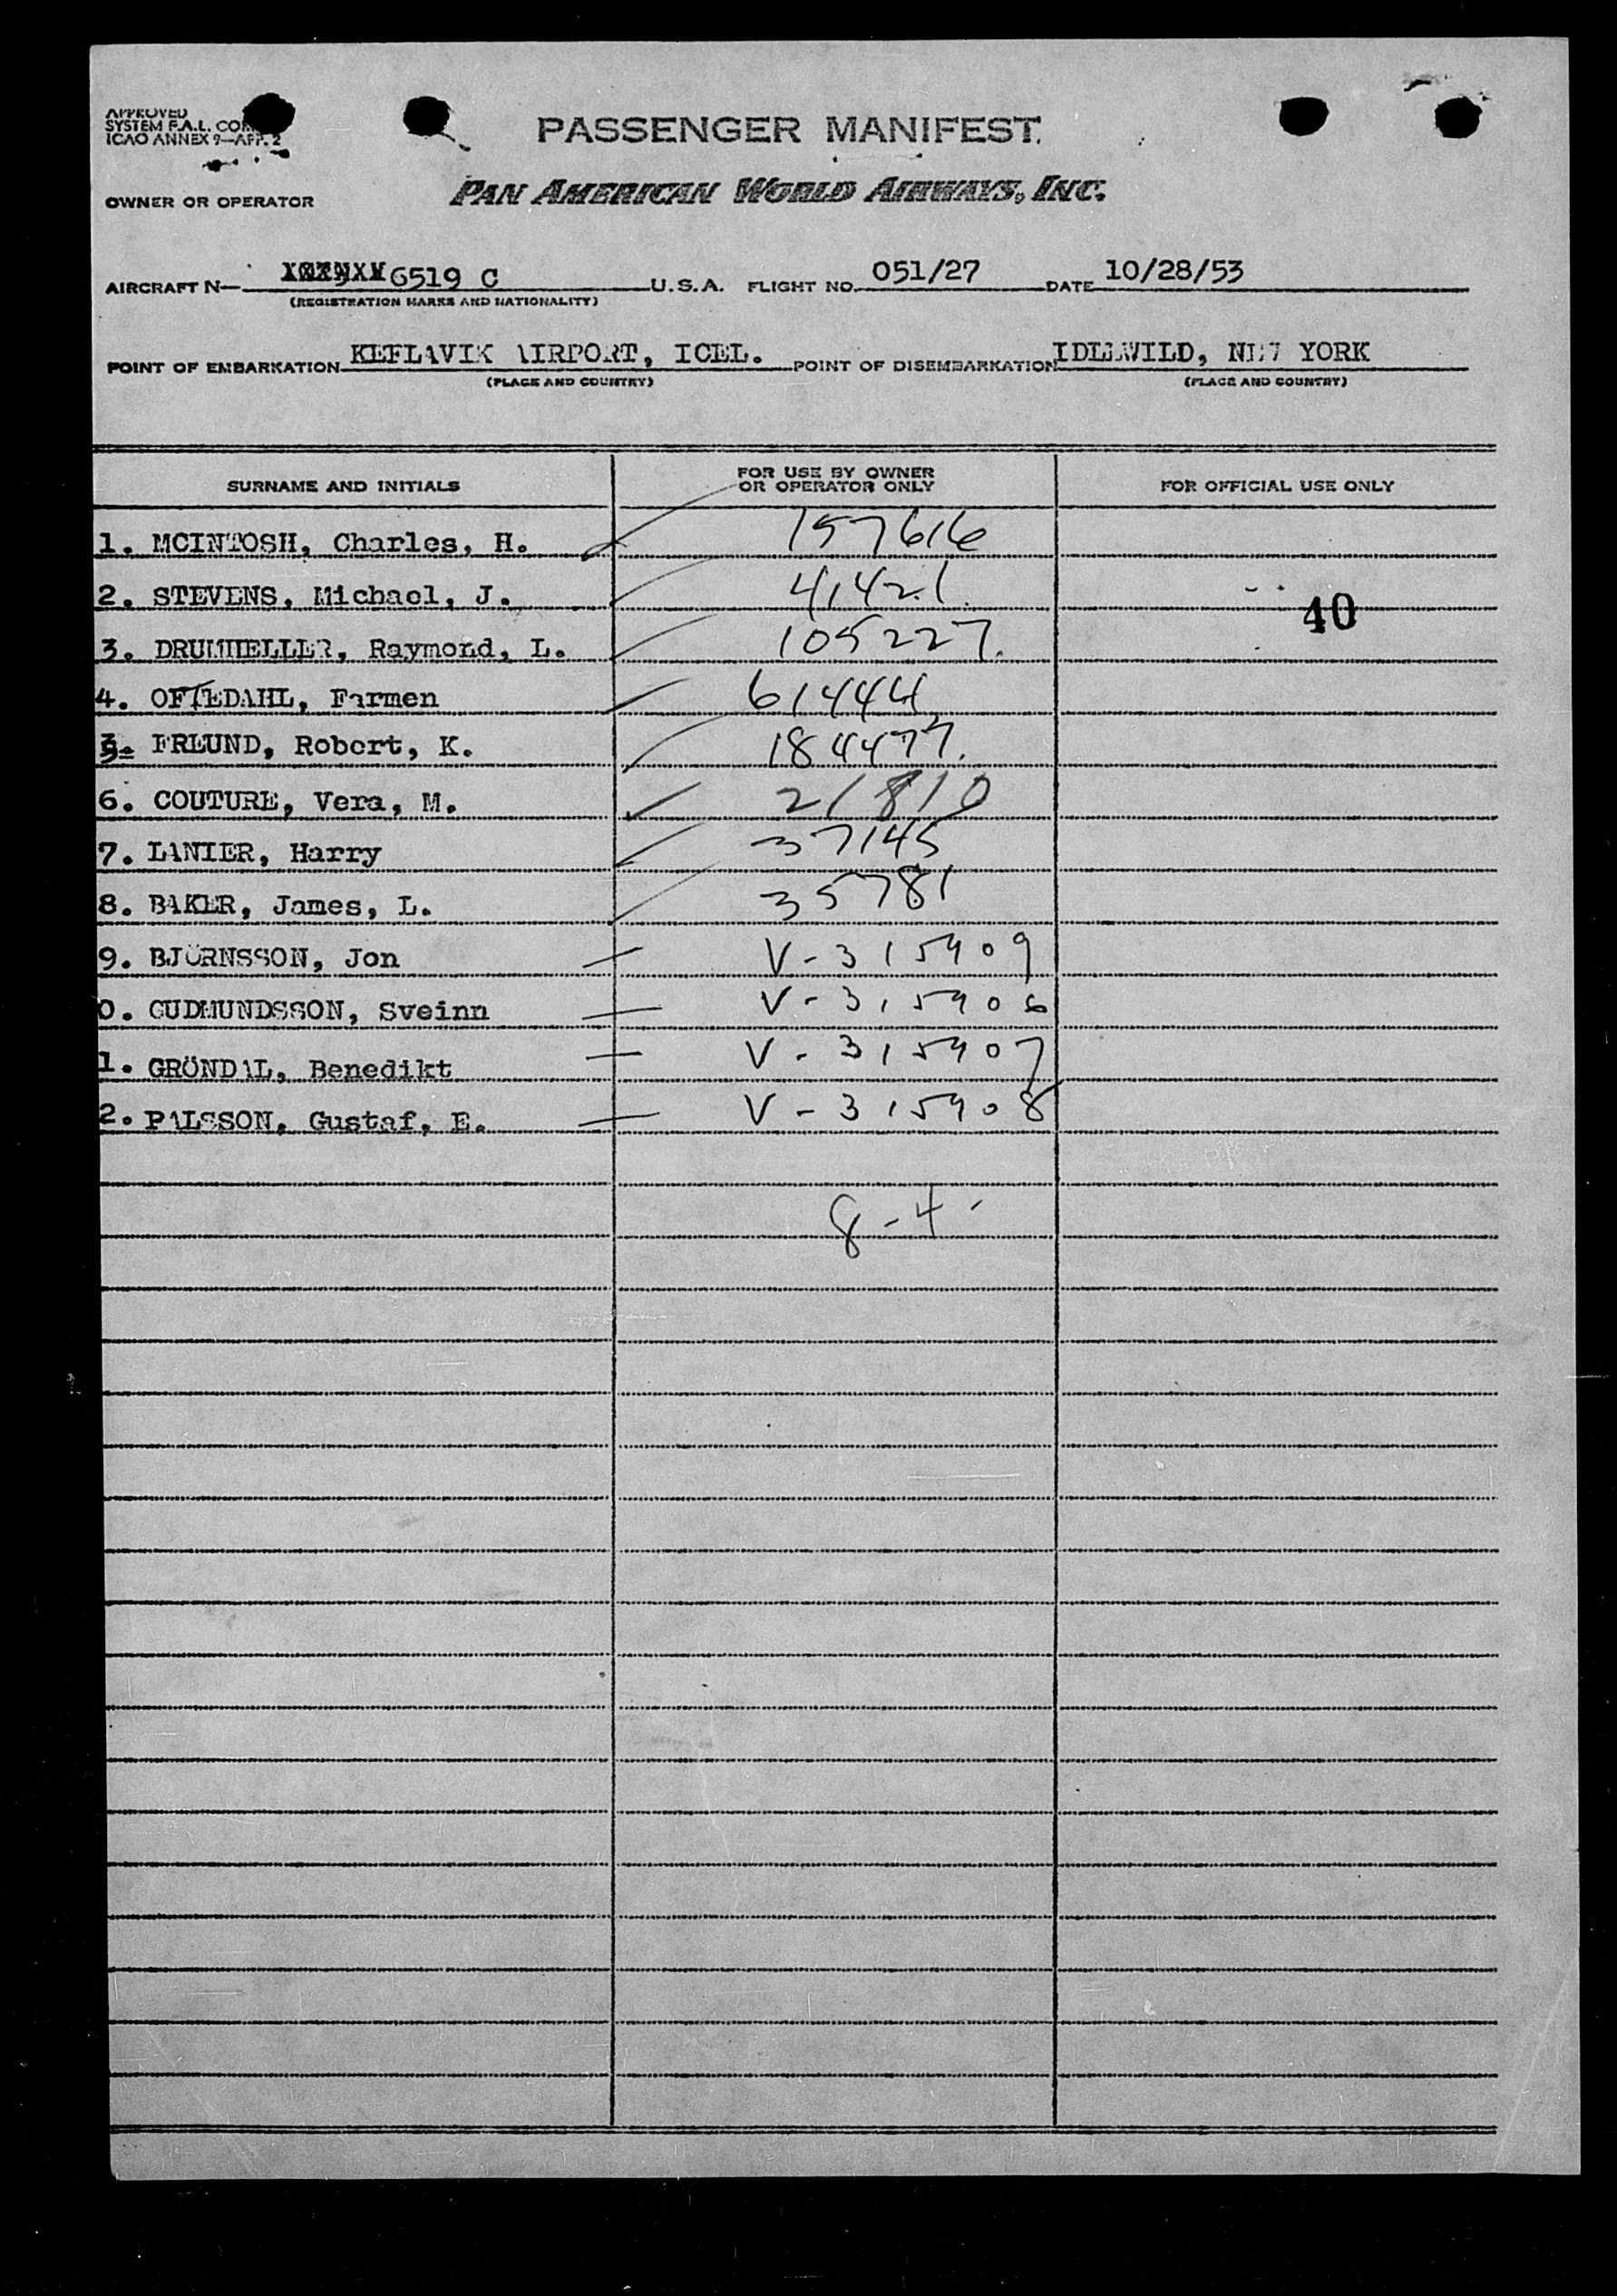 APPROVED
SYSTEM F.A.L. COM
ICAO ANNEX 9—APP. 2
PASSENGER MANIFEST
OWNER OR OPERATOR PAN AMERICAN WORLD AIRWAYS, INC.
AIRCRAFT N— 6519 C U.S.A. FLIGHT NO. 051/27 DATE 10/28/53
(REGISTRATION MARKS AND NATIONALITY)
POINT OF EMBARKATION KEFLAVIK AIRPORT, ICEL. POINT OF DISEMBARKATION IDLEWILD, NEW YORK
(PLACE AND COUNTRY) (PLACE AND COUNTRY)
SURNAME AND INITIALS FOR USE BY OWNER OR OPERATOR ONLY FOR OFFICIAL USE ONLY
1. MCINTOSH, Charles, H. 157616
2. STEVENS, Michael, J. 41421
40
3. DRUMHELLER, Raymond, L. 105227.
4. OFTEDAHL, Farmen 61444
5. FREUND, Robert, K. 184477.
6. COUTURE, Vera, M. 21810
7. LANIER, Harry 37145
8. BAKER, James, L. 35781
9. BJÖRNSSON, Jon V-315909
0. GUDMUNDSSON, Sveinn V-315906
1. GRÖNDAL, Benedikt V-315907
2. PALSSON, Gustaf, E. V-315908
8-4-